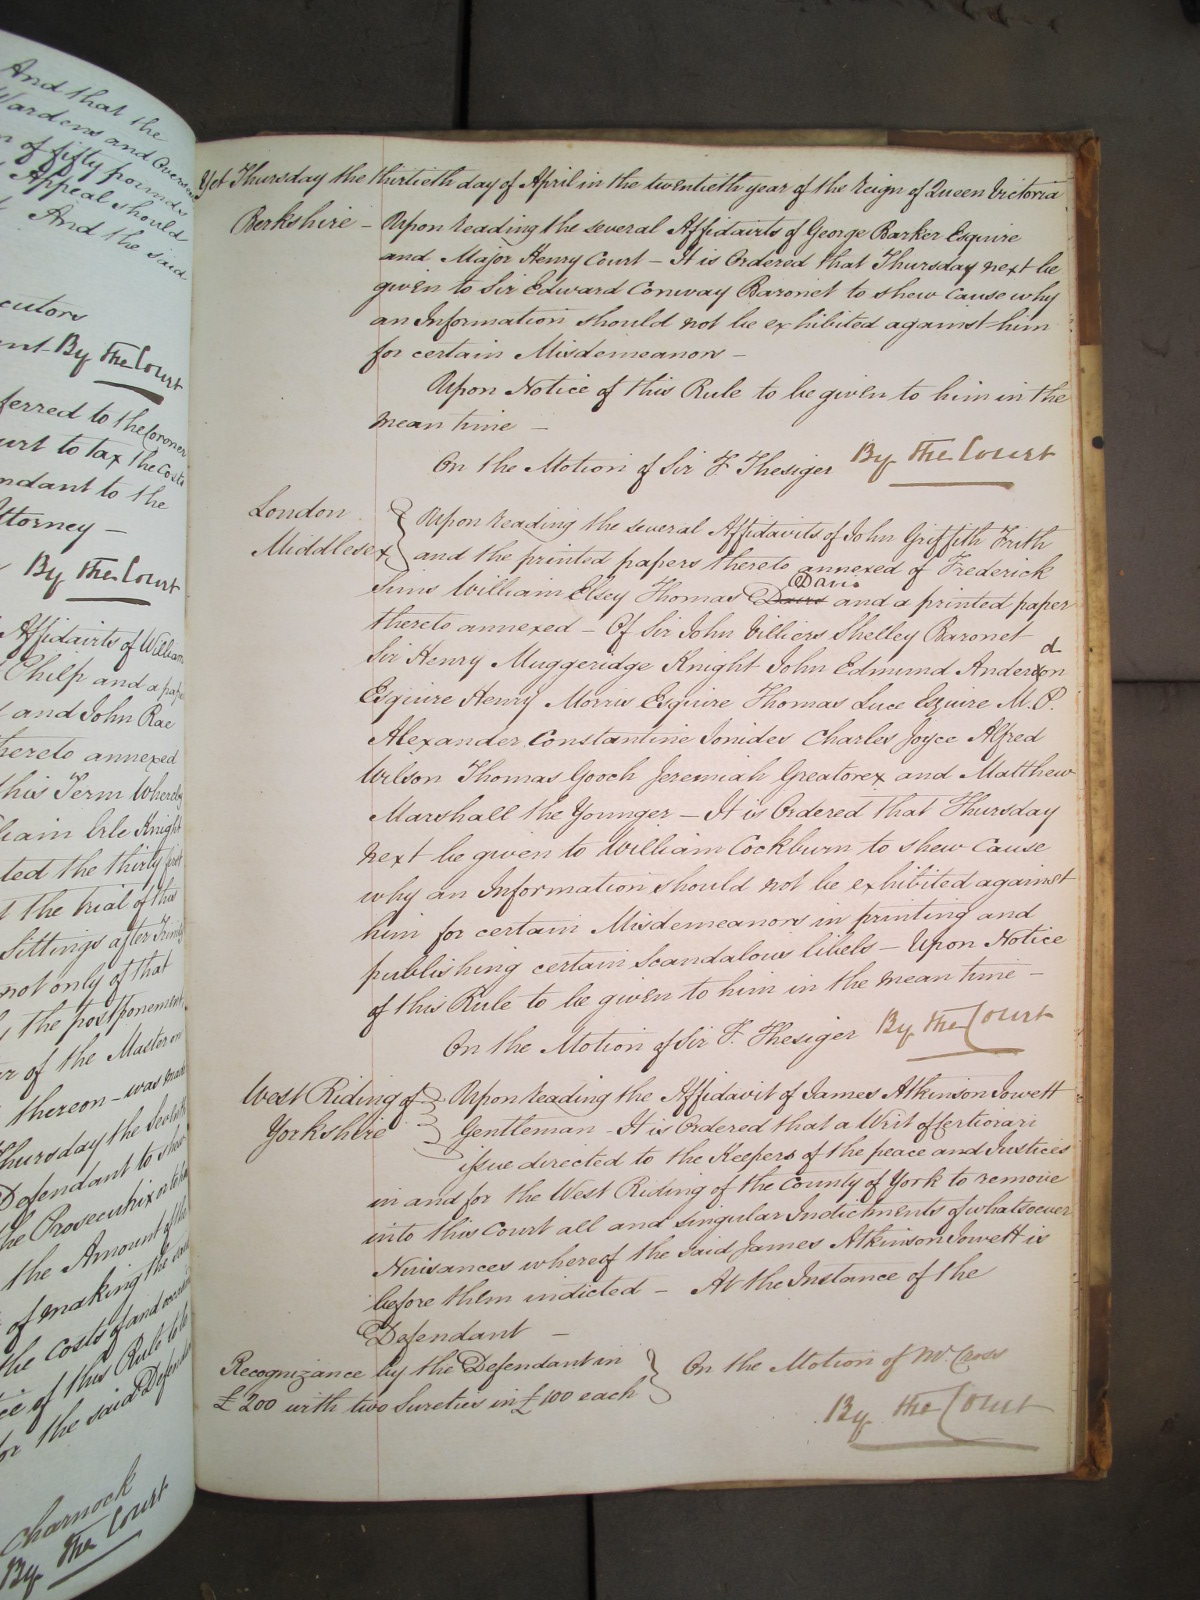 And that the
Wardens and Overseers
of fifty pounds
Appeal should
And the said
cutors
By the Court
ferred to the Coroner
urt to tax the Costs
ndant to the
Attorney —
By the Court
Affidavits of William
Philp and a paper
and John Rae
hereto annexed
this Term Whereby
liam Erle Knight
ted the thirty first
t the trial of that
Sittings after Trinity
not only of that
the postponement
er of the Master on
thereon – was made
Thursday the Seventh
Defendant to shew
the Prosecutrix or to her
the Amount of the
of making the said
the costs of and occasioned
ice of this Rule to be
for the said Defendant
Charnock
By the Court
Yet Thursday the thirtieth day of April in the twentieth year of the Reign of Queen Victoria
Berkshire – Upon reading the several Affidavits of George Barker Esquire
and Major Henry Court – It is Ordered that Thursday next be
given to Sir Edward Conway Baronet to shew cause why
an Information should not be exhibited against him
for certain Misdemeanors –
Upon Notice of this Rule to be given to him in the
mean time –
On the Motion of Sir F Thesiger By the Court
London Upon reading the several Affidavits of John Griffith Frith
Middlesex and the printed papers thereto annexed of Frederick
Davis
Sims William Elsey Thomas and a printed paper
thereto annexed – Of Sir John Villiers Shelley Baronet
Sir Henry Muggeridge Knight John Edmund Anderdon
Esquire Henry Morris Esquire Thomas Luce Esquire M.P.
Alexander Constantine Ionides Charles Joyce Alfred
Wilson Thomas Gooch Jeremiah Greatorex and Matthew
Marshall the Younger – It is Ordered that Thursday
next be given to William Cockburn to shew cause
why an Information should not be exhibited against
him for certain Misdemeanors in printing and
publishing certain scandalous libels – Upon Notice
of this Rule to be given to him in the mean time –
On the Motion of Sir F. Thesiger By the Court
West Riding of Upon reading the Affidavit of James Atkinson Jowett
Yorkshire Gentleman – It is Ordered that a Writ of Certiorari
issue directed to the Keepers of the peace and Justices
in and for the West Riding of the County of York to remove
into this Court all and singular Indictments of whatsoever
Nuisances whereof the said James Atkinson Jowett is
before them indicted – At the Instance of the
Defendant –
Recognizance by the Defendant in On the Motion of Mr. Cross
£200 with two Sureties in £100 each
By the Court